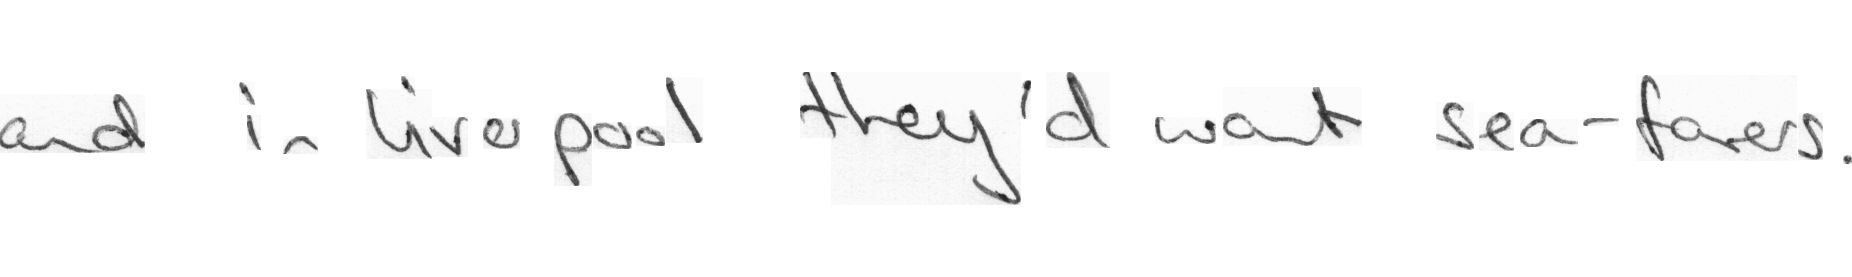 and in Liverpool they'd want sea-farers.